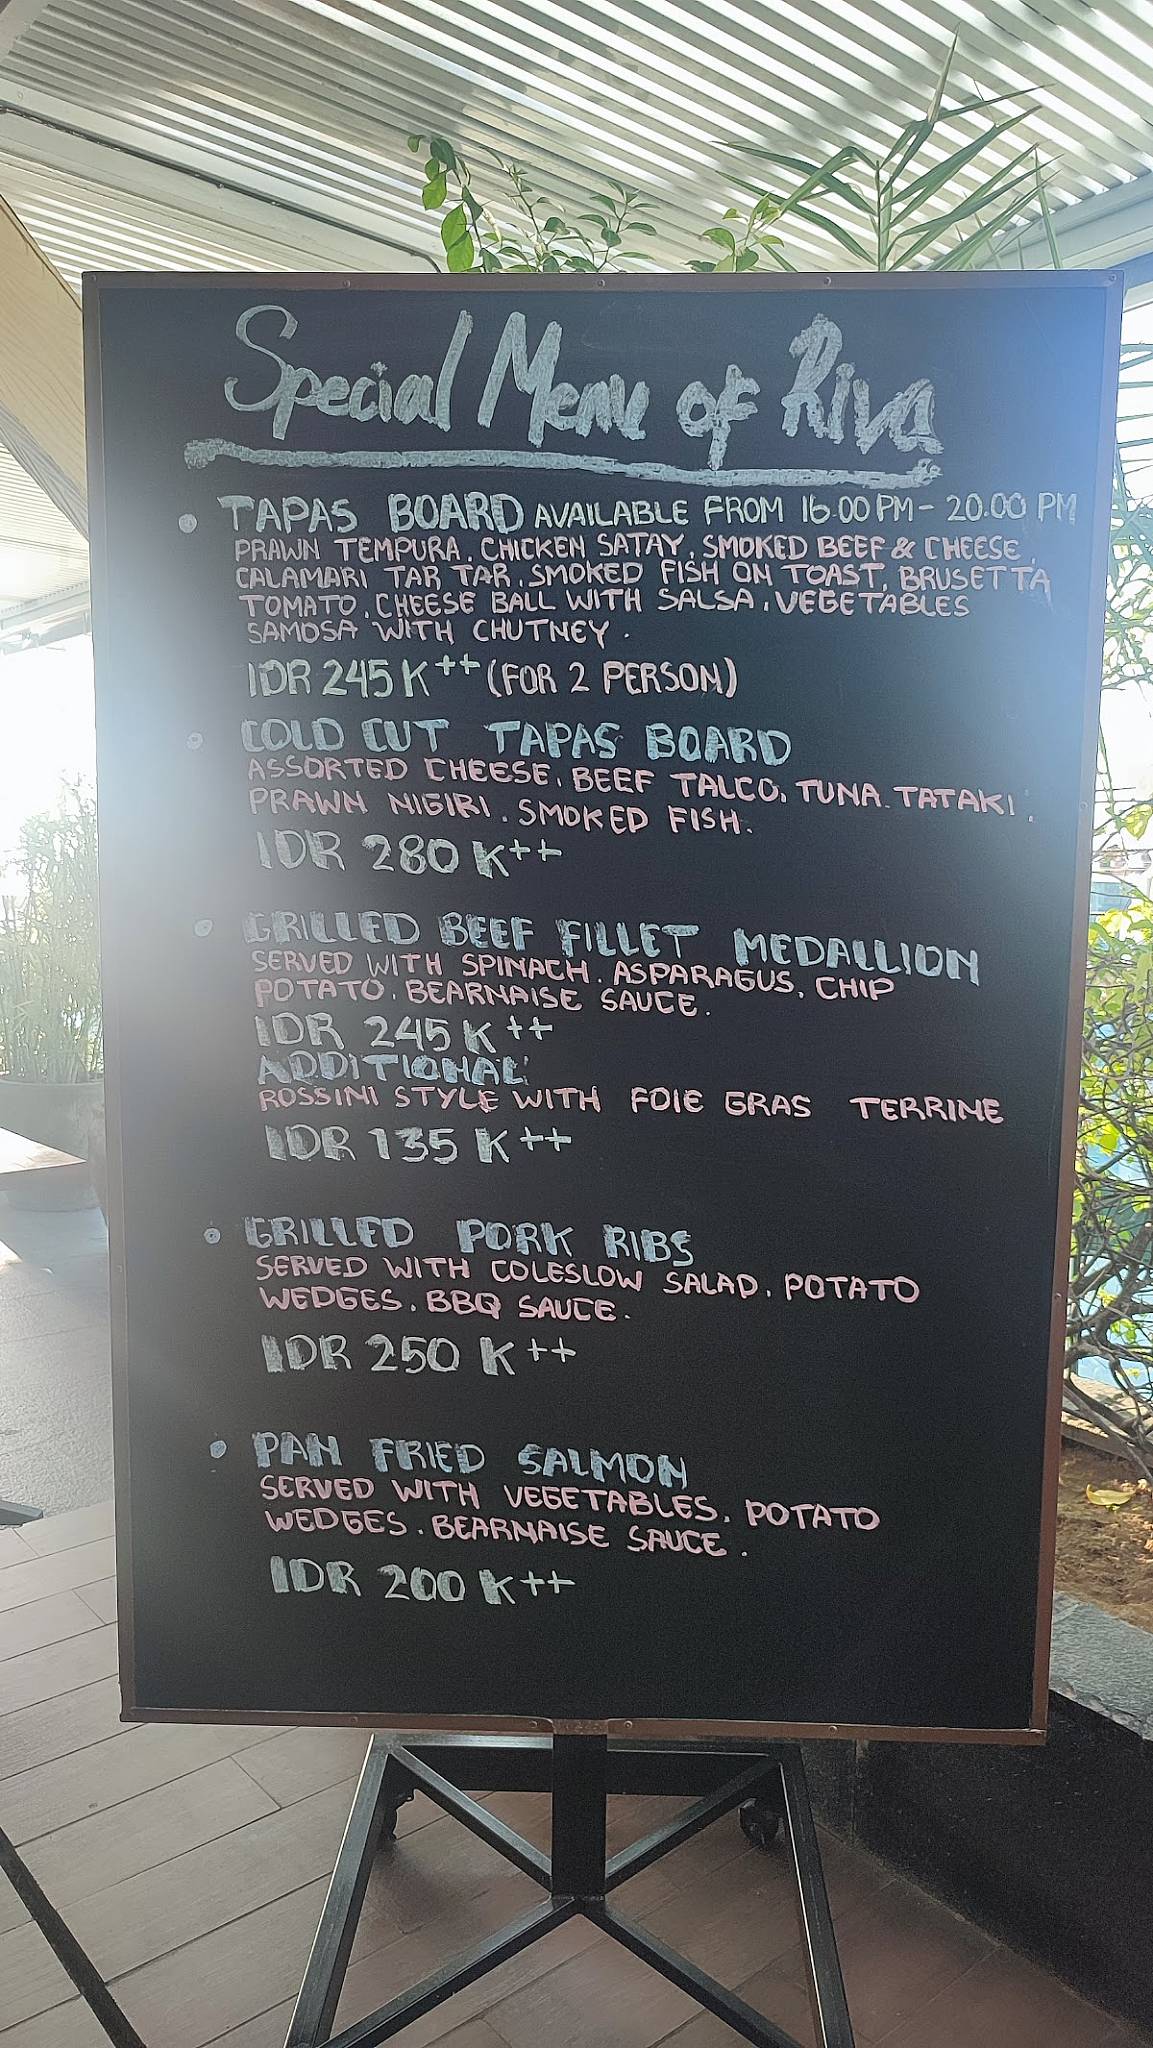 Special Menu of Riva
TAPAS BOARD AVAILABLE FROM 16.00 PM - 20.00 PM
PRAWN TEMPURA, CHICKEN SATAY, SMOKED BEEF & CHEESE,
CALAMARI TAR TAR, SMOKED FISH ON TOAST, BRUSETTA
TOMATO, CHEESE BALL WITH SALSA, VEGETABLES
SAMOSA WITH CHUTNEY.
IDR 245 K++ (FOR 2 PERSON)
COLD CUT TAPAS BOARD
ASSORTED CHEESE, BEEF TALCO, TUNA TATAKI,
PRAWN NIGIRI, SMOKED FISH.
IDR 280 K++
GRILLED BEEF FILLET MEDALLION
SERVED WITH SPINACH, ASPARAGUS, CHIP
POTATO, BEARNAISE SAUCE.
IDR 245 K++
ADDITIONAL
ROSSINI STYLE WITH FOIE GRAS TERRINE
IDR 135 K++
GRILLED PORK RIBS
SERVED WITH COLESLOW SALAD, POTATO
WEDGES, BBQ SAUCE.
IDR 250 K++
PAN FRIED SALMON
SERVED WITH VEGETABLES, POTATO
WEDGES, BEARNAISE SAUCE.
IDR 200 K++